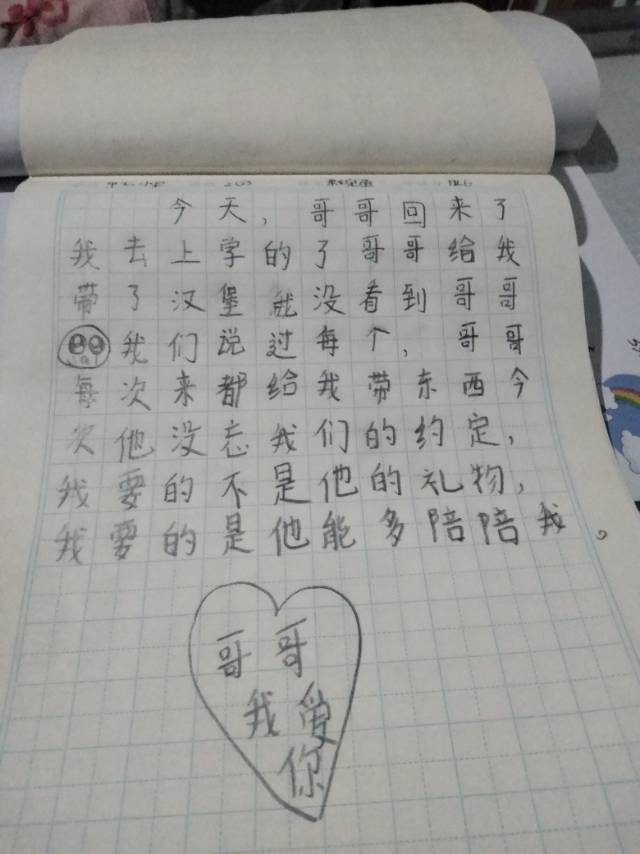 今天，哥哥回来了
我去上学的了哥哥给我
带了汉堡我没看到哥哥
我们说过每个，哥哥
每次来都给我带东西今
次他没忘我们的约定，
我要的不是他的礼物，
我要的是他能多陪陪我。
哥哥
我爱
你